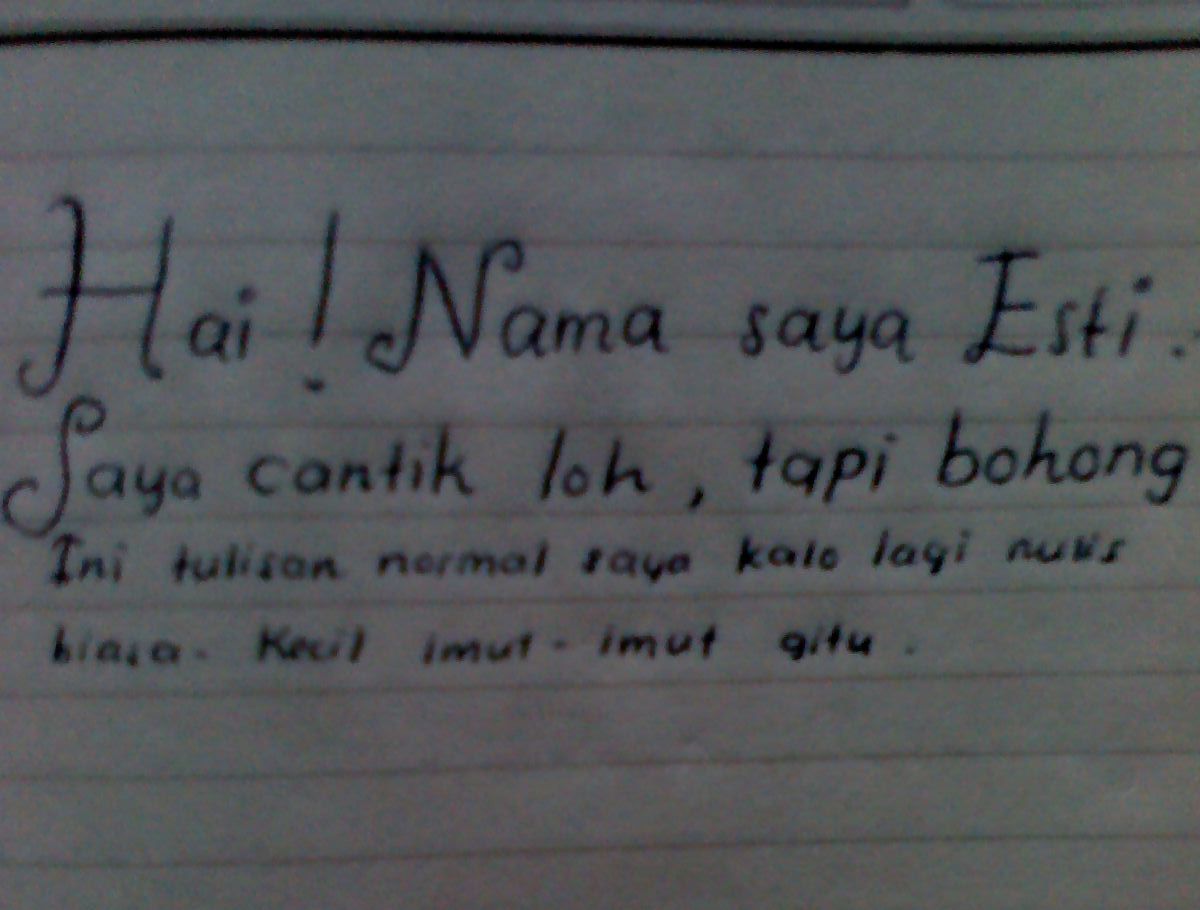 Hai! Nama saya Esti.
Saya cantik loh, tapi bohong
Ini tulisan normal saya kalo lagi nulis
biasa. Kecil imut-imut gitu.